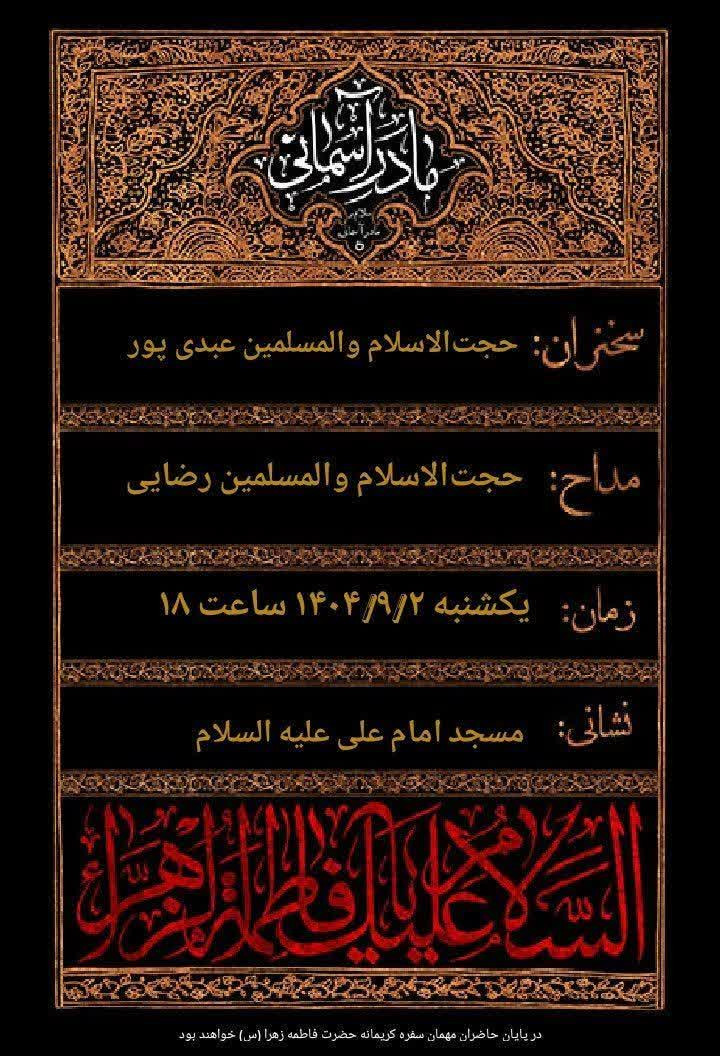 مادر آسمانی
سلام بر
مادر آسمانی
سخنران: حجت‌الاسلام والمسلمین عبدی پور
مداح: حجت‌الاسلام والمسلمین رضایی
زمان: یکشنبه ۱۴۰۴/۹/۲ ساعت ۱۸
نشانی: مسجد امام علی علیه السلام
السلام علیک یا فاطمة الزهراء
در پایان حاضران مهمان سفره کریمانه حضرت فاطمه زهرا (س) خواهند بود